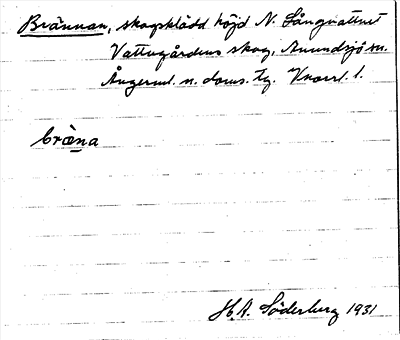 Brännan, skogsklädd höjd N. Långvattnet
Vattugårdens skog, Anundsjö sn.
Ångerml. n. doms. tg. Vnorrl. l.
bràna
H.A. Söderberg 1931